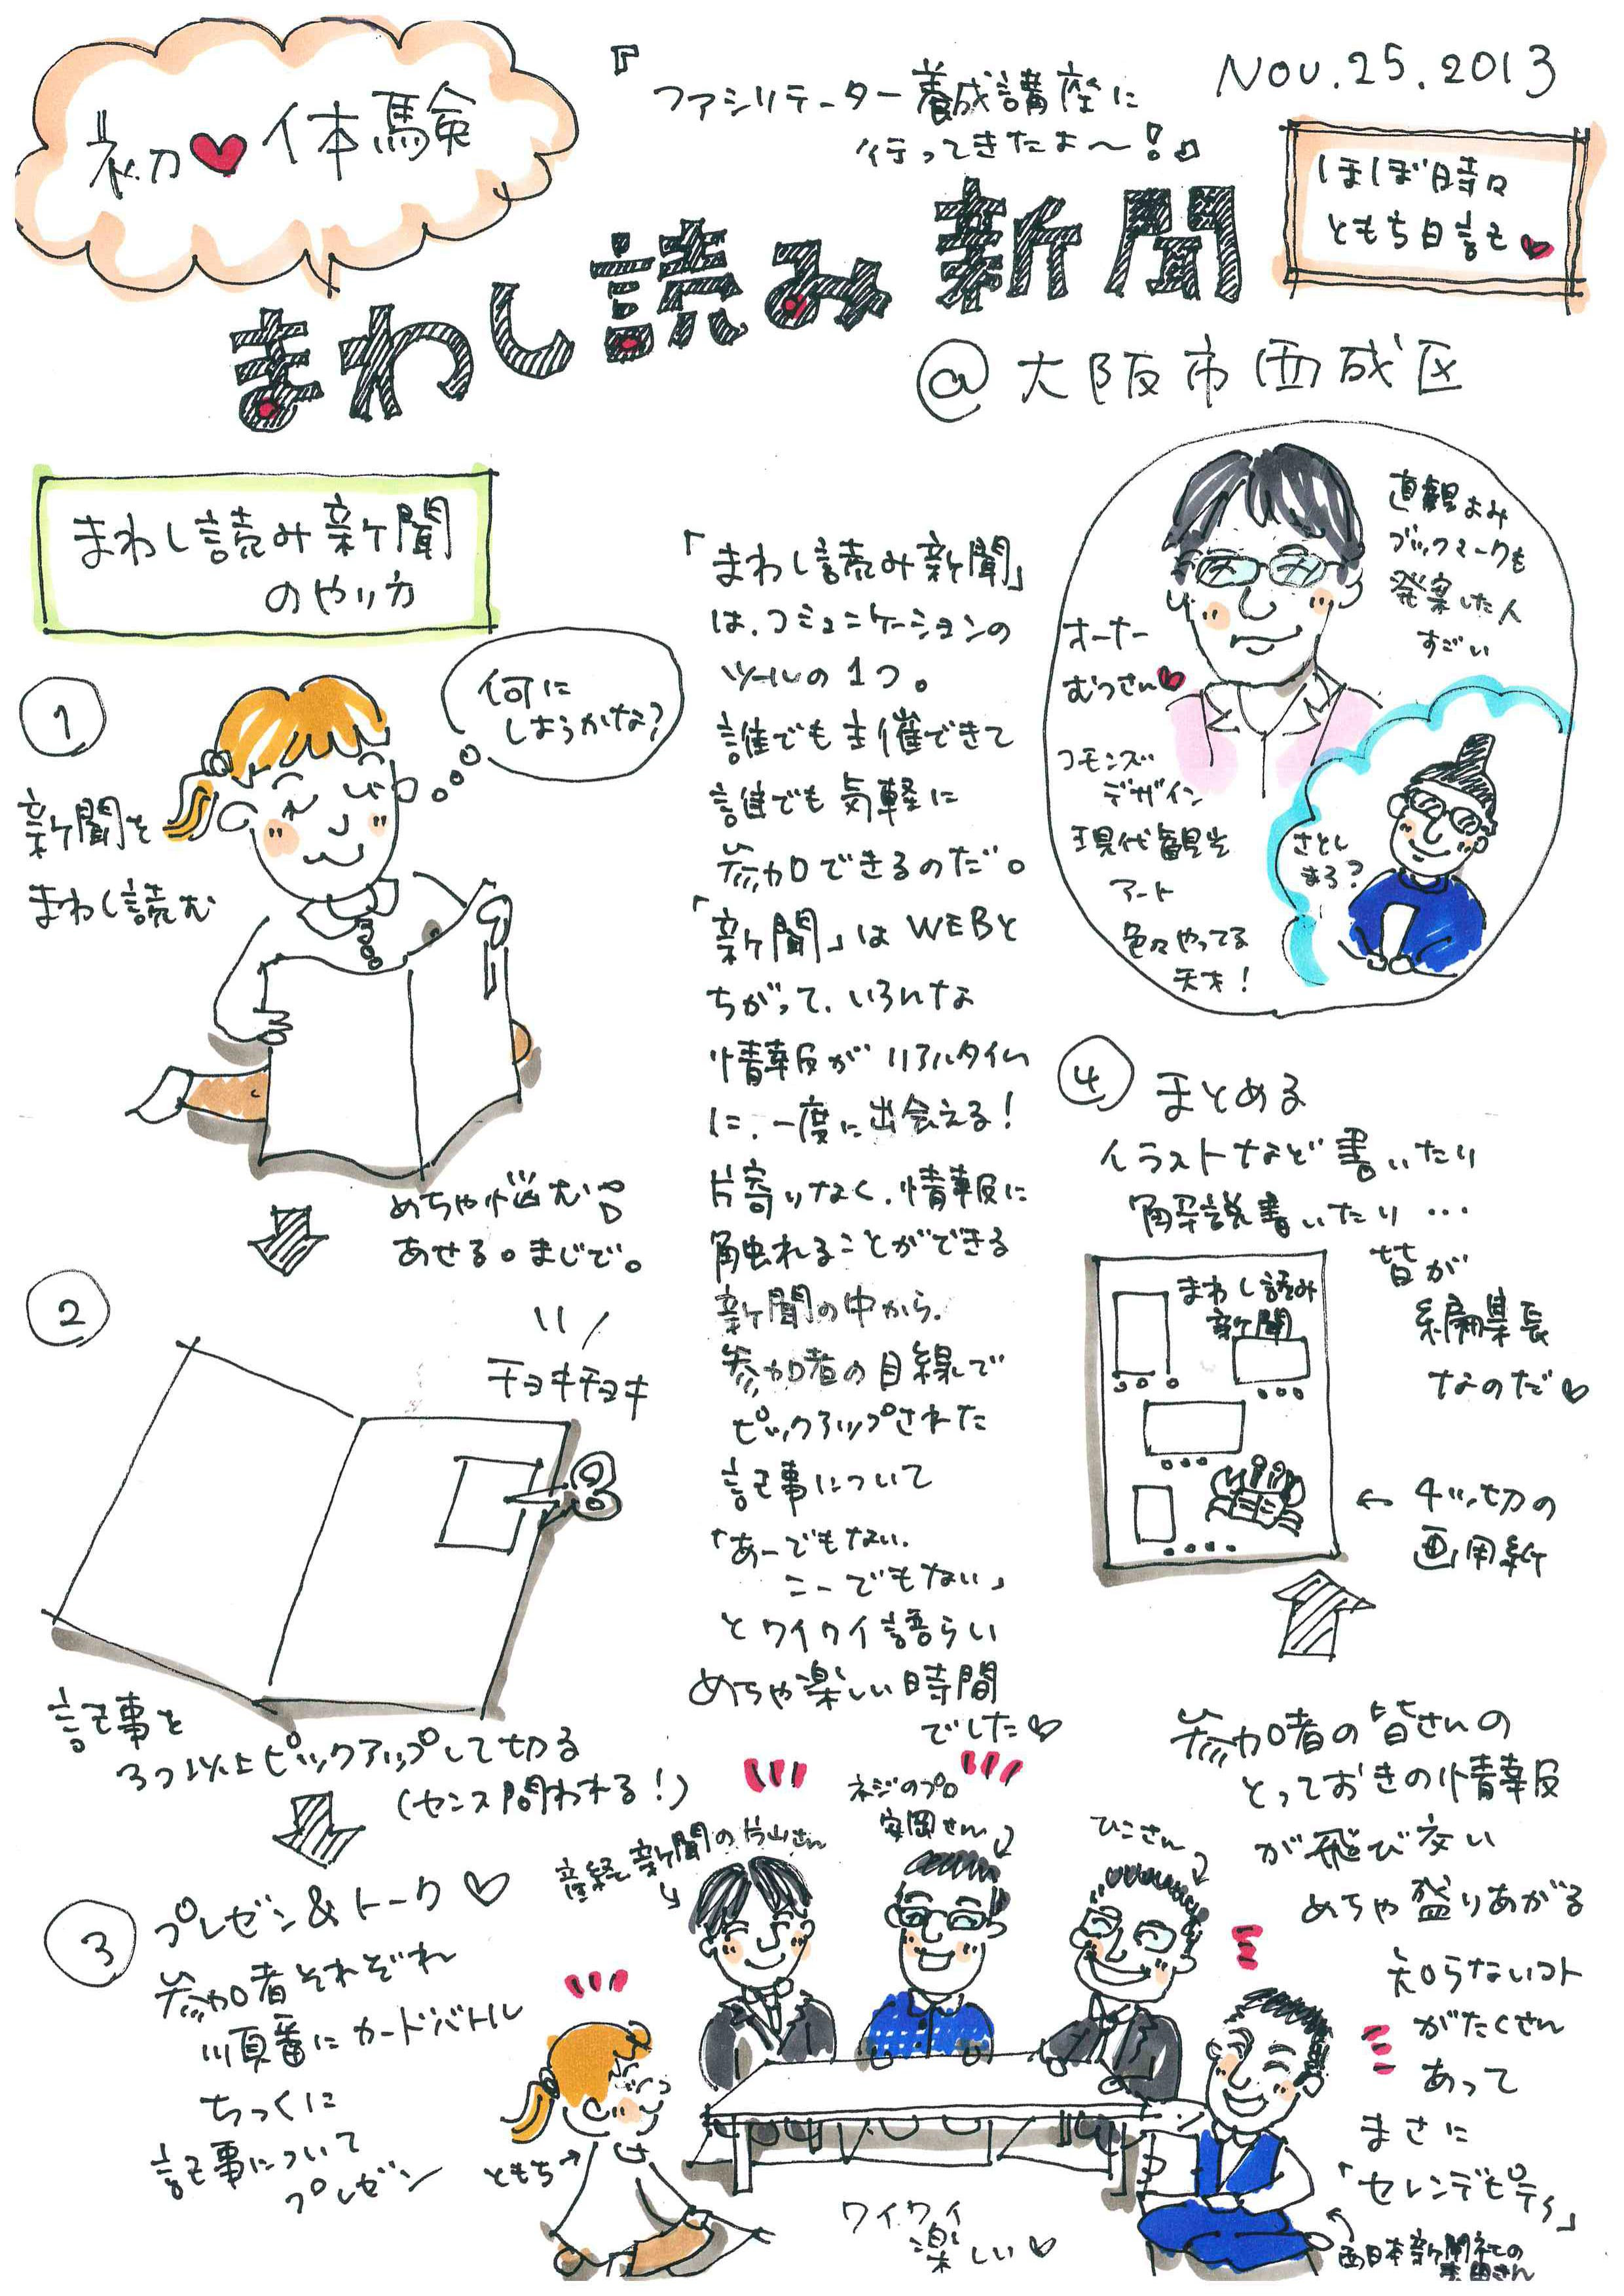 初♥体験
『ファシリテーター養成講座に
行ってきたよ〜!』
Nov.25.2013
ほぼ時々
ともち日記♥
まわし読み新聞
@大阪市西成区
まわし読み新聞
のやり方
1
新聞を
まわし読む
何に
しようかな?
めちゃ悩む。
あせる。まじで。
2
チョキチョキ
記事を
3つ以上ピックアップして切る
(センス問われる!)
3
プレゼン&トーク♡
参加者それぞれ
順番にカードバトル
ちっくに
記事について
プレゼン
「まわし読み新聞」
は、コミュニケーションの
ツールの1つ。
誰でも主催できて
誰でも気軽に
参加できるのだ。
「新聞」はWEBと
ちがって、いろんな
情報がリアルタイム
に、一度に出会える!
片寄りなく、情報に
触れることができる
新聞の中から、
参加者の目線で
ピックアップされた
記事について
「あーでもない、
こーでもない」
とワイワイ語らい
めちゃ楽しい時間
でした♡
直観よみ
ブックマークも
発案した人
すごい
オーナー
むつさん♥
コモンズ
デザイン
現代観光
アート
色々やってる
天才!
さとし
まろ?
4
まとめる
イラストなど書いたり
解説書いたり…
皆が
編集長
なのだ♡
まわし読み
新聞
←4ツ切の
画用紙
参加者の皆さんの
とっておきの情報
が飛び交い
めちゃ盛りあがる
知らないコト
がたくさん
あって
まさに
「セレンデピティ」
産経新聞の片山さん
ネジのプロ
安岡さん
ひこさん
ともち→
ワイワイ
楽しい♡
西日本新聞社の